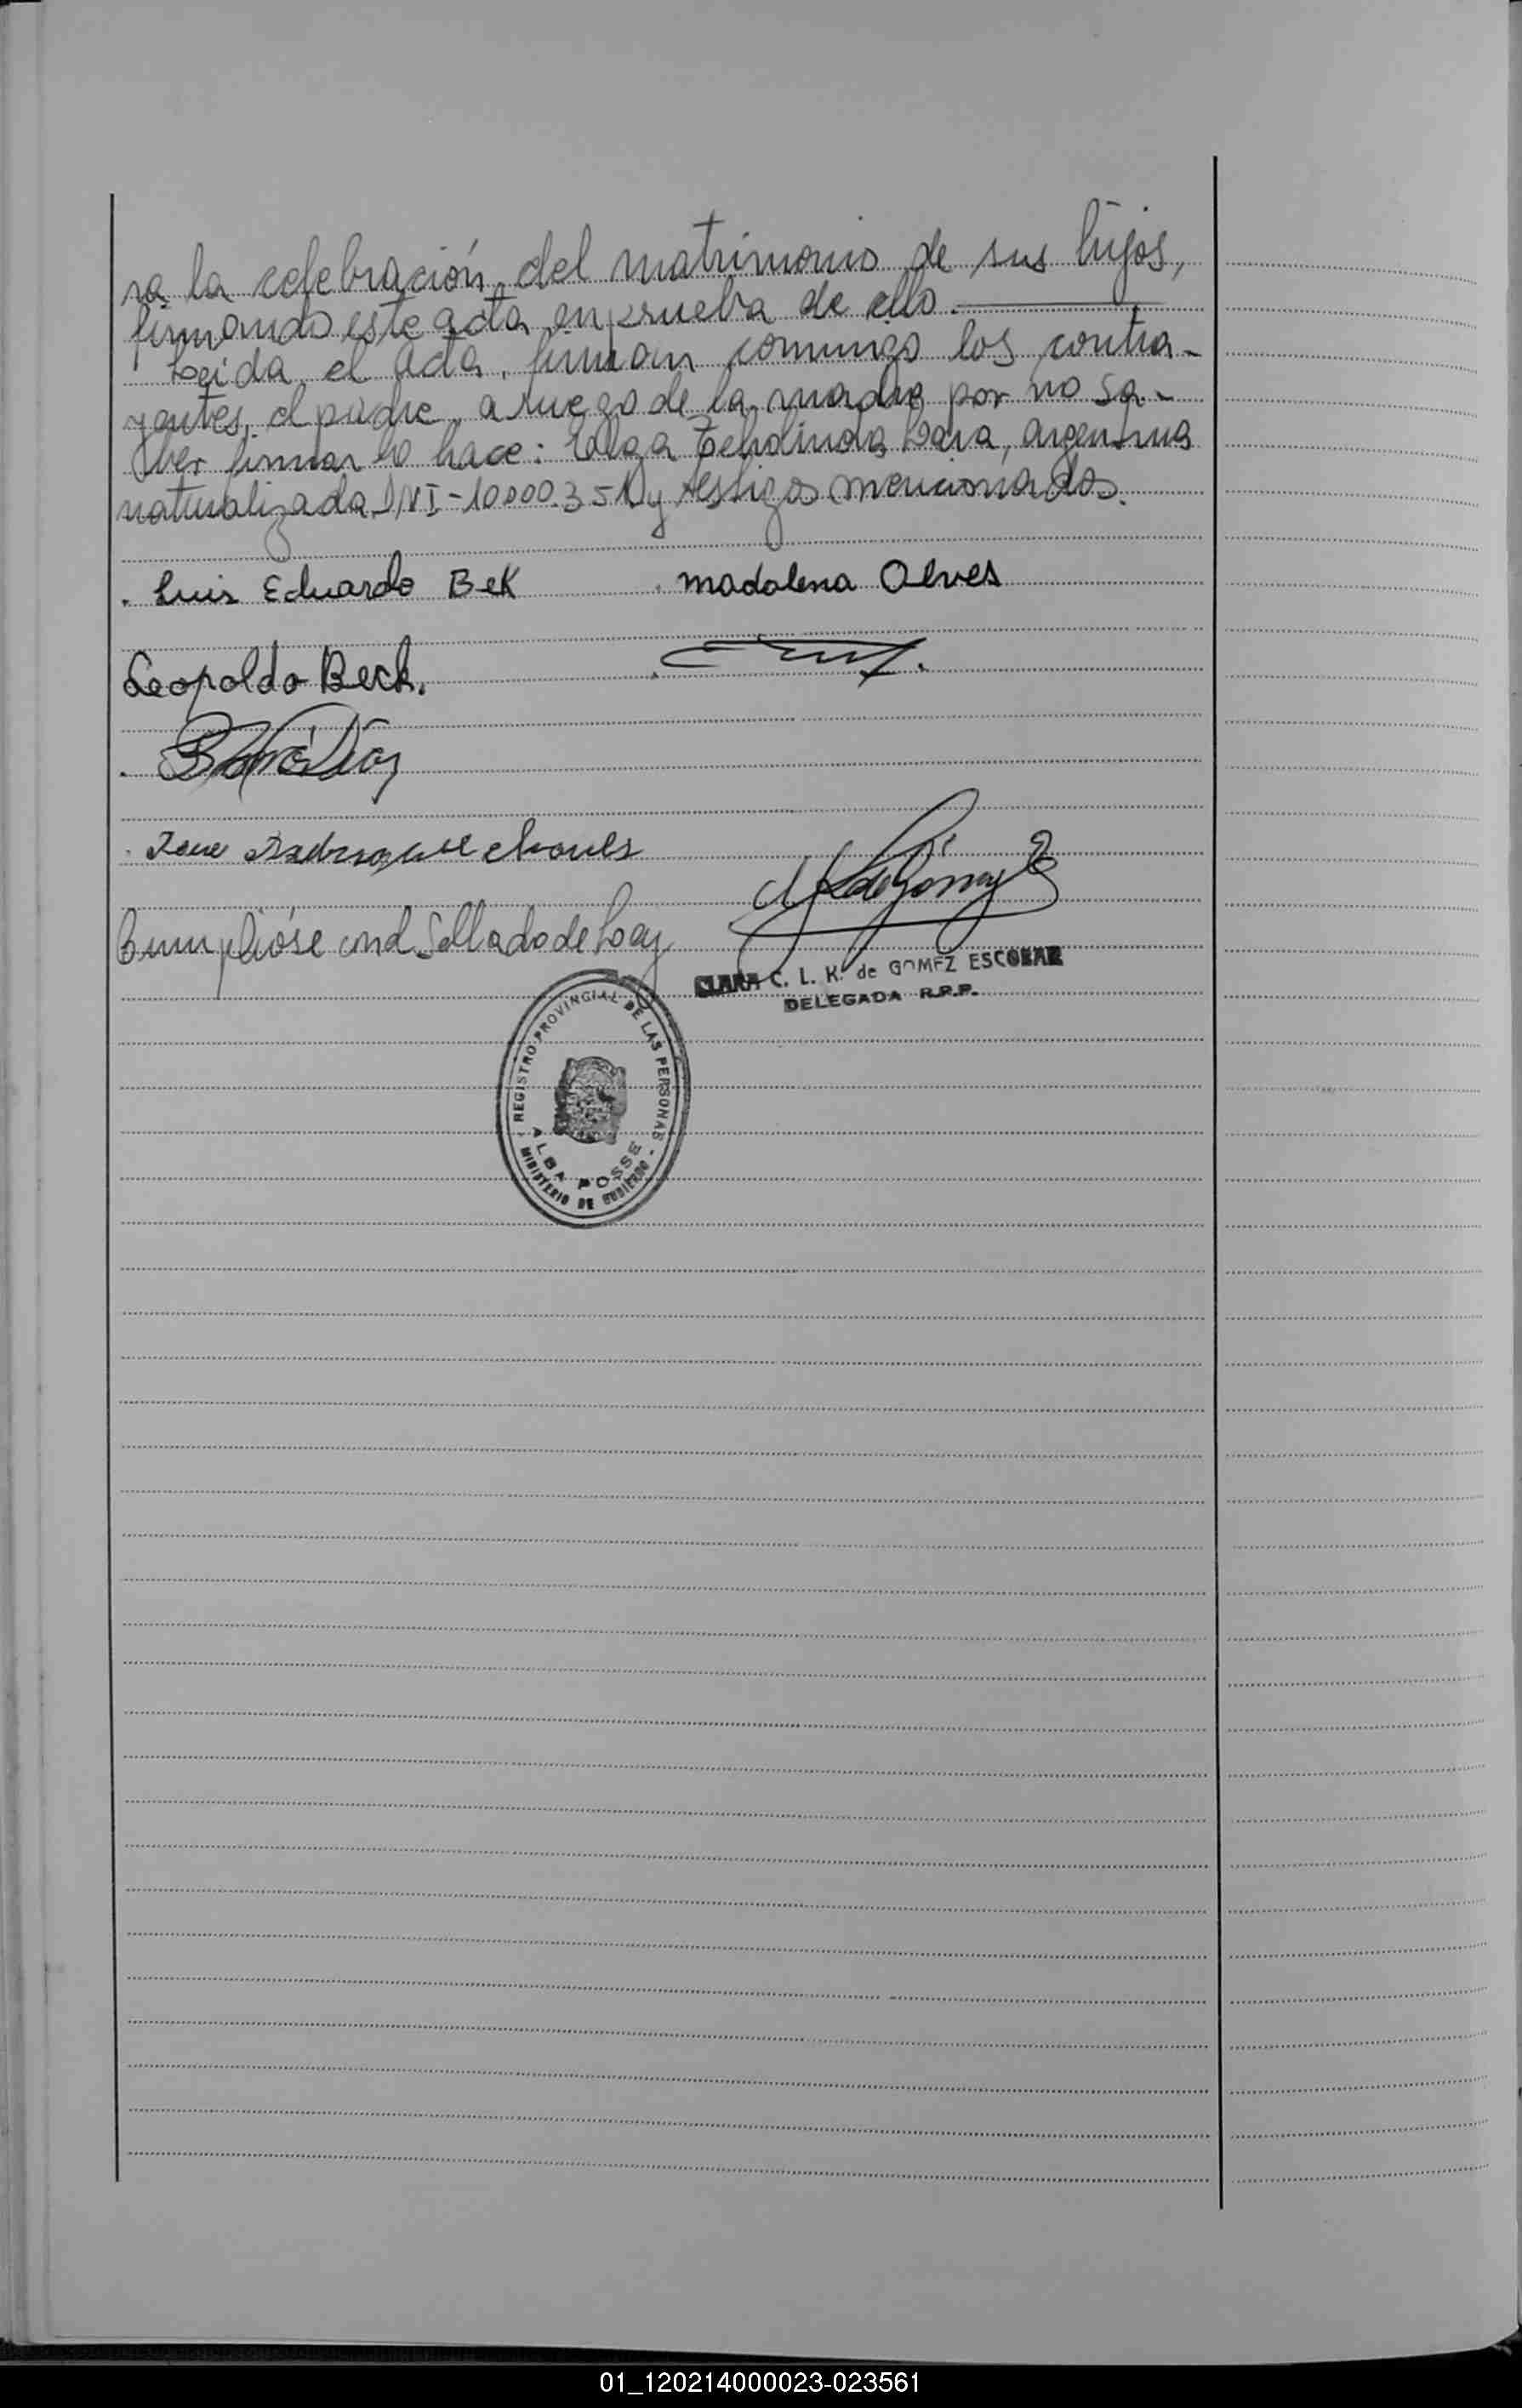 ra la celebración del matrimonio de sus hijos,
firmando este acta en prueba de ello.
Leida el acta, firman conmigo los contra-
yentes, el padre, a ruego de la madre por no sa-
ber firmar lo hace: Olga Lara, argentina
naturalizada, y testigos mencionados.
Luis Eduardo Bek madalena Alves
Leopoldo Beck.
Cumplióse con el Sellado de Ley
CLARA C. L. K. de GOMEZ ESCOBAR
DELEGADA R.P.P.
REGISTRO PROVINCIAL DE LAS PERSONAS
ALBA POSSE
MINISTERIO DE GOBIERNO
01_120214000023-023561